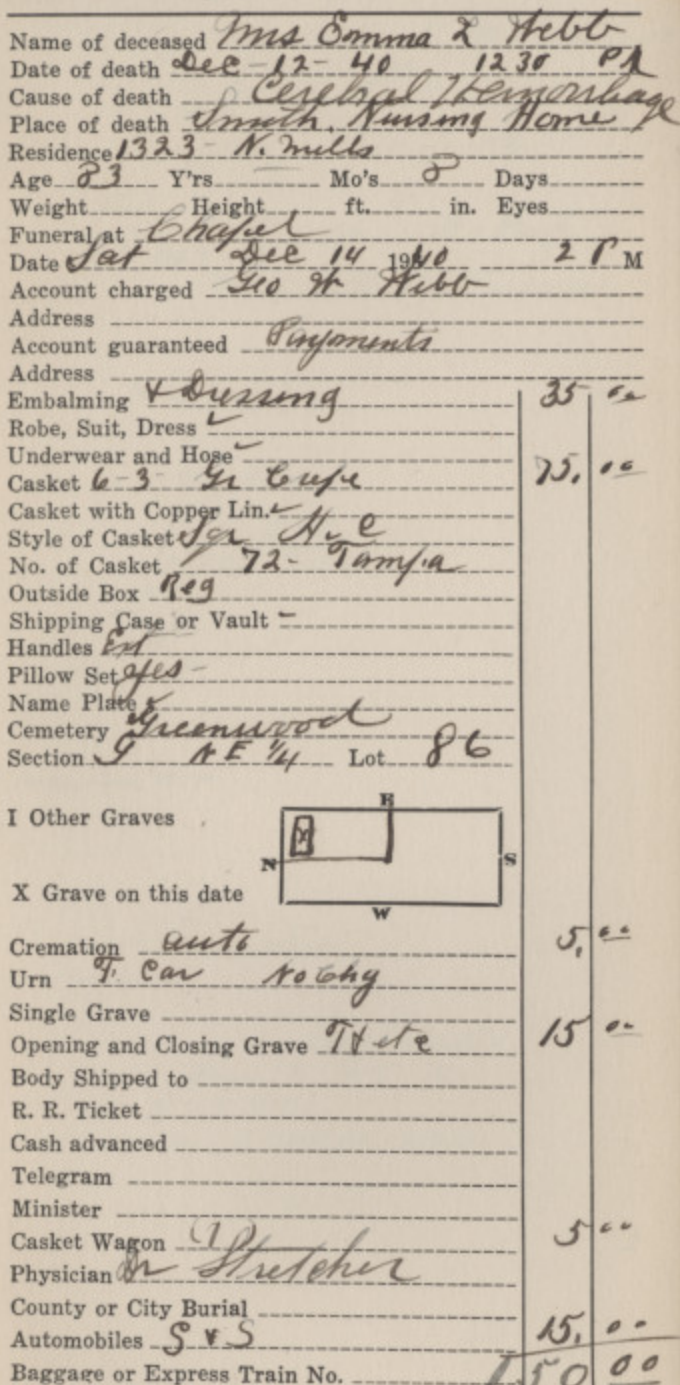 Name of deceased Mrs Emma L Webb
Date of death Dec 12- 40 1230 PM
Cause of death Cerebral Hemorrhage
Place of death Smith Nursing Home
Residence 1323 N. Mills
Age 83 Y'rs. Mo's 8 Days
Weight Height ft. in. Eyes
Funeral at Chapel
Date Sat Dec 14 1940 2 P M
Account charged Geo W Webb
Address
Account guaranteed Payments
Address
Embalming & Dressing 35 00
Robe, Suit, Dress ✓
Underwear and Hose ✓
Casket 6-3 Gr Crepe 75. 00
Casket with Copper Lin. ✓
Style of Casket Sqr H. C
No. of Casket 72- Tampa
Outside Box Reg
Shipping Case or Vault -
Handles Ext
Pillow Set yes -
Name Plate
Cemetery Greenwood
Section G NE 1/4 Lot 86
E
I Other Graves
X
N S
X Grave on this date
W
Cremation auto 5. 00
Urn F. Car No Chg
Single Grave
Opening and Closing Grave T H etc 15 00
Body Shipped to
R. R. Ticket
Cash advanced
Telegram
Minister
Casket Wagon 5 00
Physician Dr Stretcher
County or City Burial
Automobiles S & S 15. 00
Baggage or Express Train No. 150 00